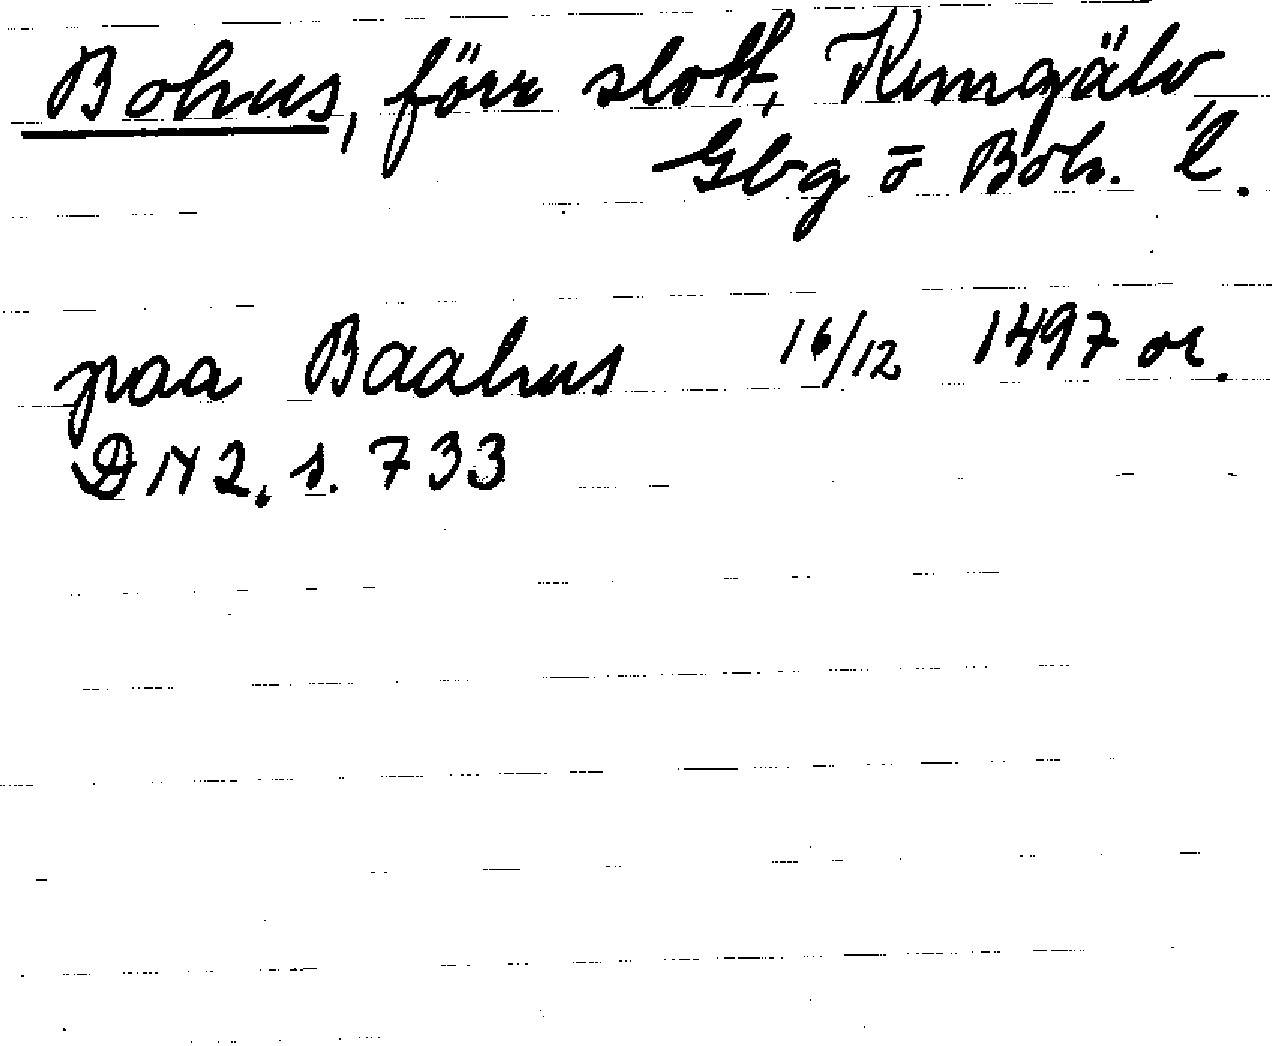 Bohus, förr slott, Kungälv,
Gbg o Boh. l.
paa Baahus 16/12 1497 or.
DN 2. s. 733